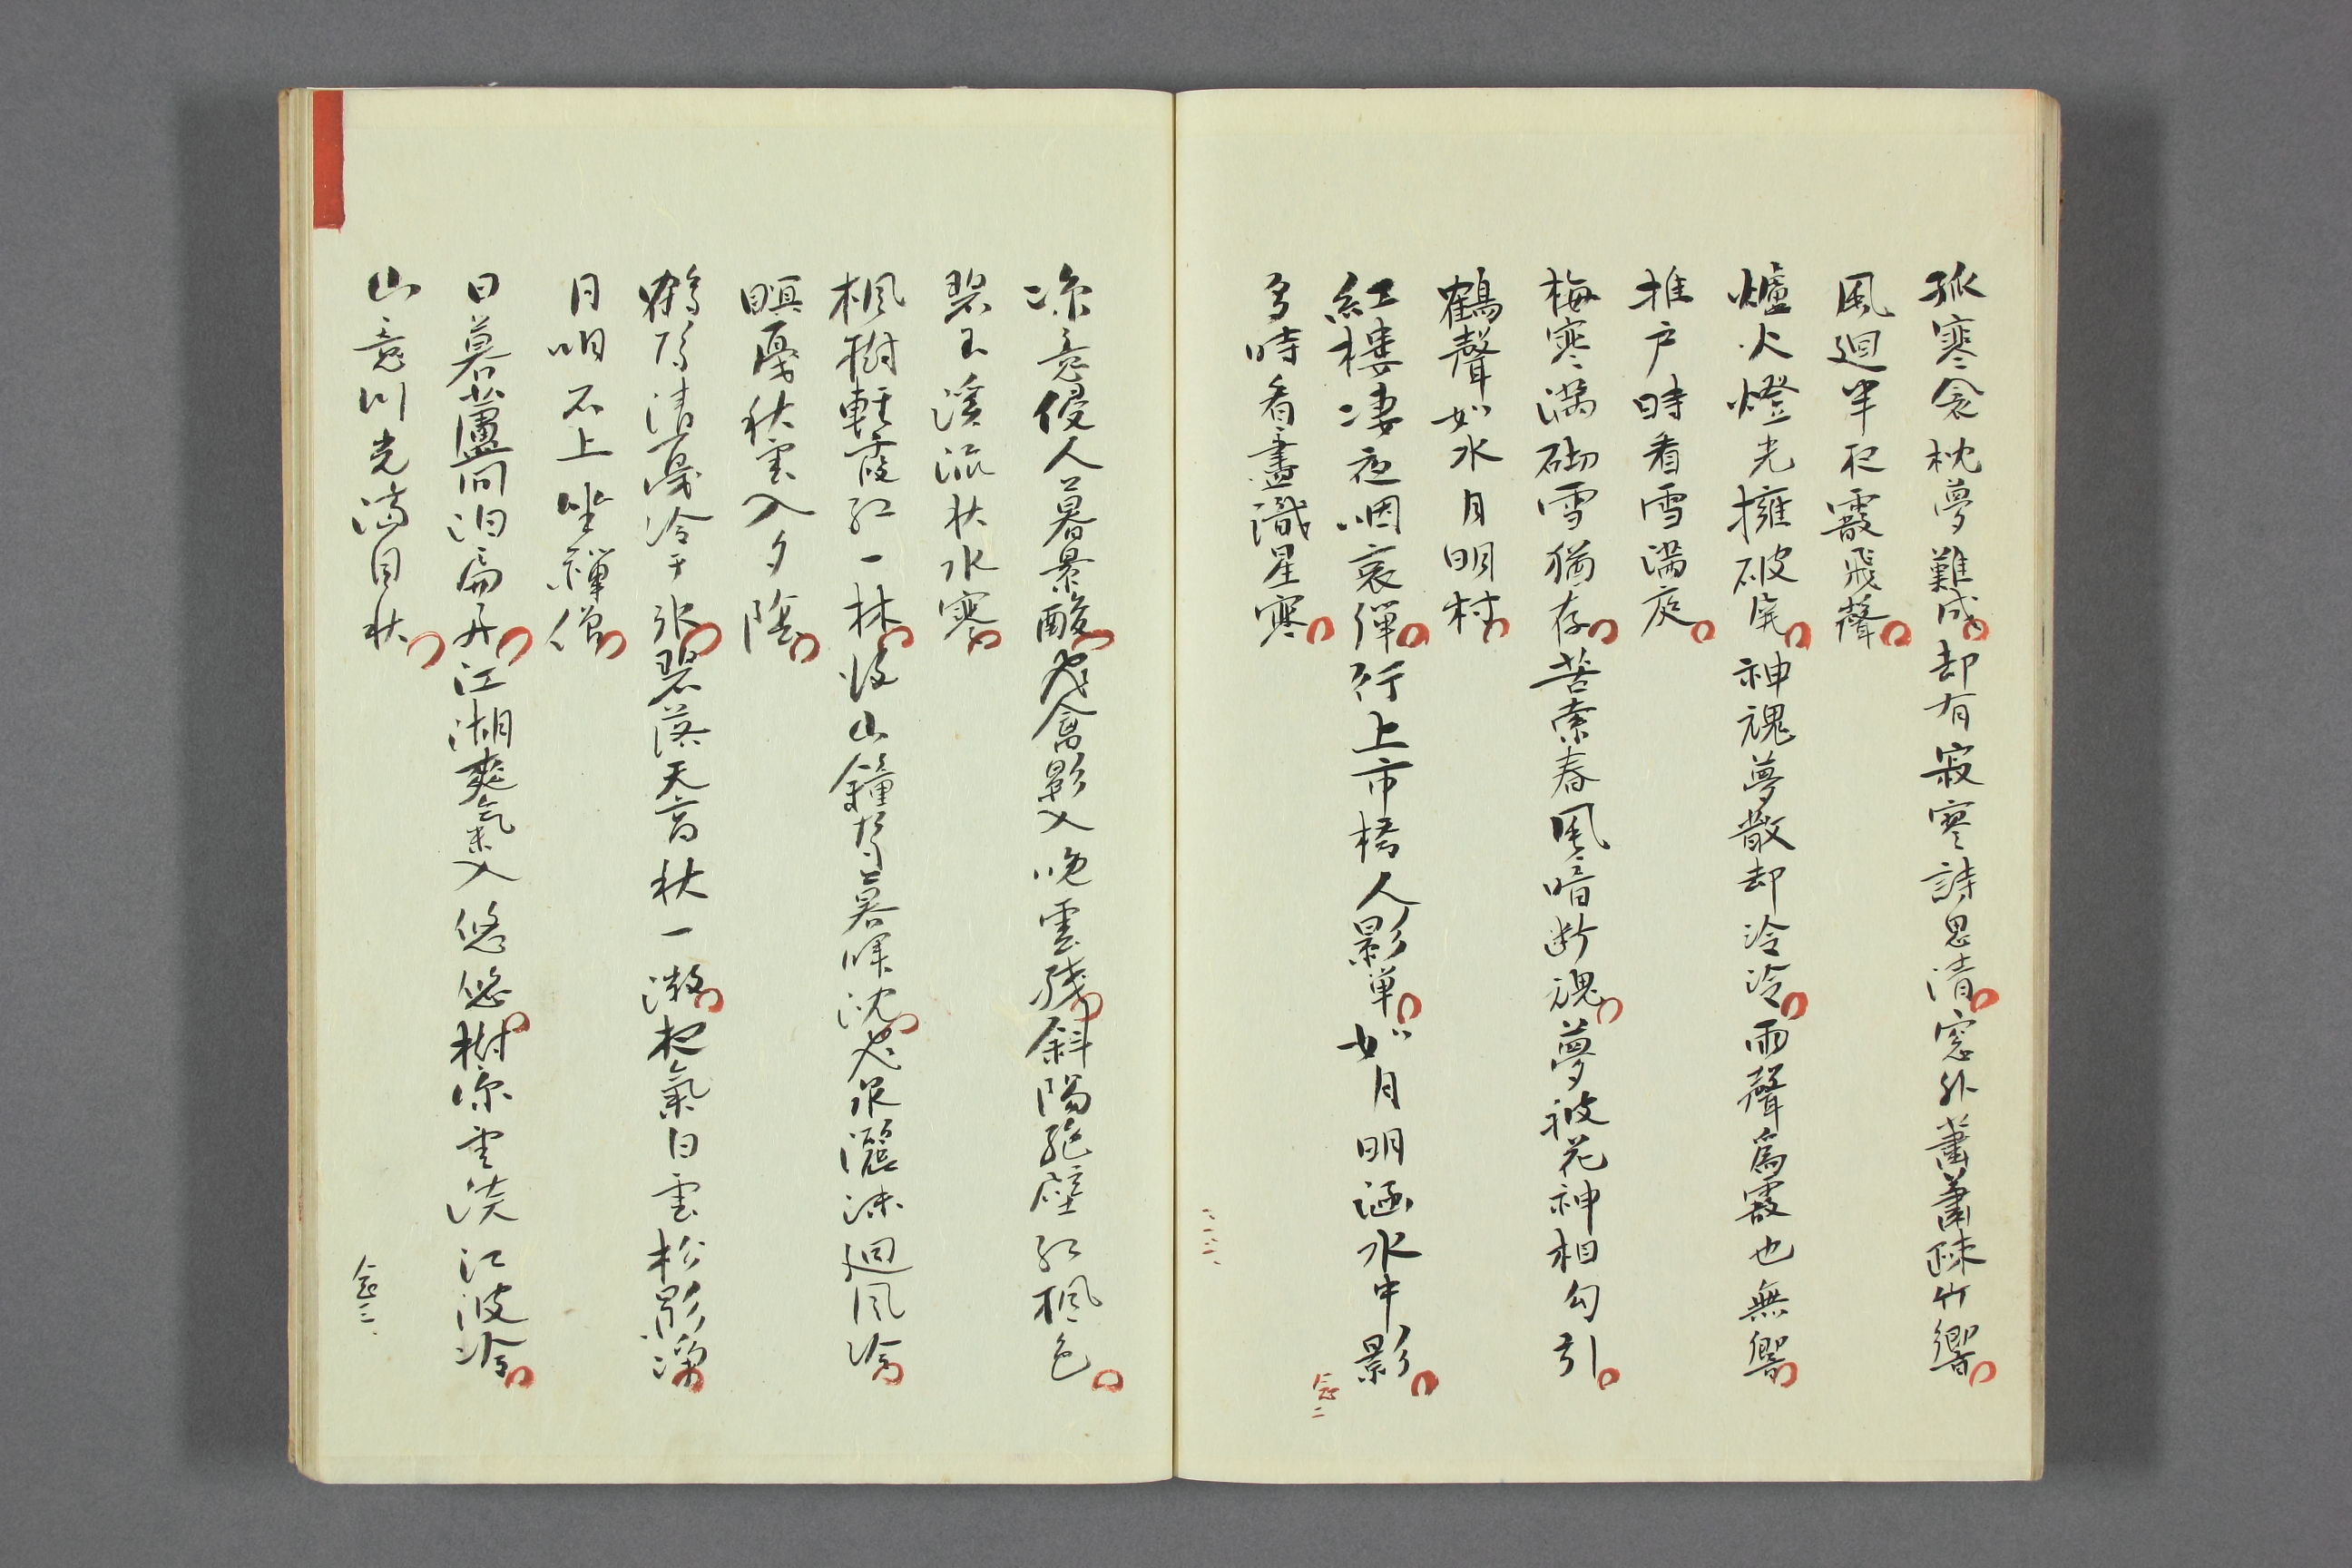 孤寒衾枕夢難成却有寂寥詩思清窓外蕭蕭疎竹響
風迴半夜霰飛聲
爐火燈光擁破屏神魂夢散却泠泠雨聲爲霰也無響
推戶時看雪滿庭
梅寒滿砌雪猶存苦索春風暗斷魂夢被花神相勾引
鶴聲如水月明村
紅樓凄夜咽哀彈行上市橋人影單如月明涵水中影
多時看盡識星寒
凉意侵人暮景酸飛禽影入晚雲殘斜陽絶壁紅楓色
碧玉溪流秋水寒
楓樹輕霞紅一林後山鐘暮暉沈飛泉灑沫迴風冷
暝憂秋雲入夕陰
鶴清憂冷于氷碧落天高秋一澂夜氣白雲松影深
月明石上坐禪僧
日暮蘆間泊扁舟江湖爽氣入悠悠樹凉雲淡江波冷
山意川光滿目秋